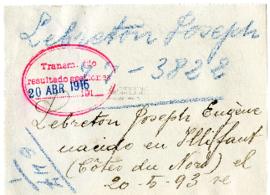 Lebreton Joseph
Transmitido
resultado gestiones
20 ABR 1915
191
97-3822
Lebreton Joseph Eugène
nacido en Illiffaut
(Côtes du Nord) el
20-5-93 re